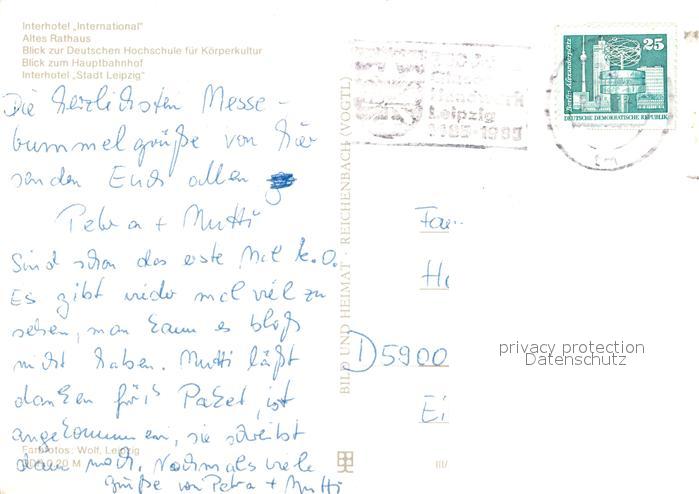 Interhotel „International“
Altes Rathaus
Blick zur Deutschen Hochschule für Körperkultur
Blick zum Hauptbahnhof
Interhotel „Stadt Leipzig“
Die herzlichsten Messe-
bummelgrüße von hier
senden Euch allen
Petra + Mutti
Sind schon das erste Mal k.o.
Es gibt wieder mal viel zu
sehen, man kann es bloß
nicht haben. Mutti läßt
danken für's Paket, ist
angekommen, sie schreibt
dann noch. Nochmals viele
Grüße von Petra + Mutti
Farbfotos: Wolf, Leipzig
0,20 M
BILD UND HEIMAT · REICHENBACH (VOGTL)
III/
Leipzig
25
Berlin-Alexanderplatz
DEUTSCHE DEMOKRATISCHE REPUBLIK
Fam.
D 5900
Ei
privacy protection
Datenschutz